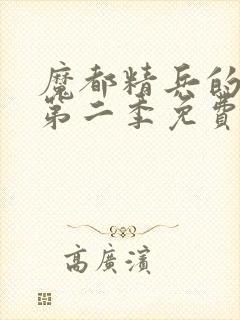 魔都精兵的
第二季免費
高廣濱